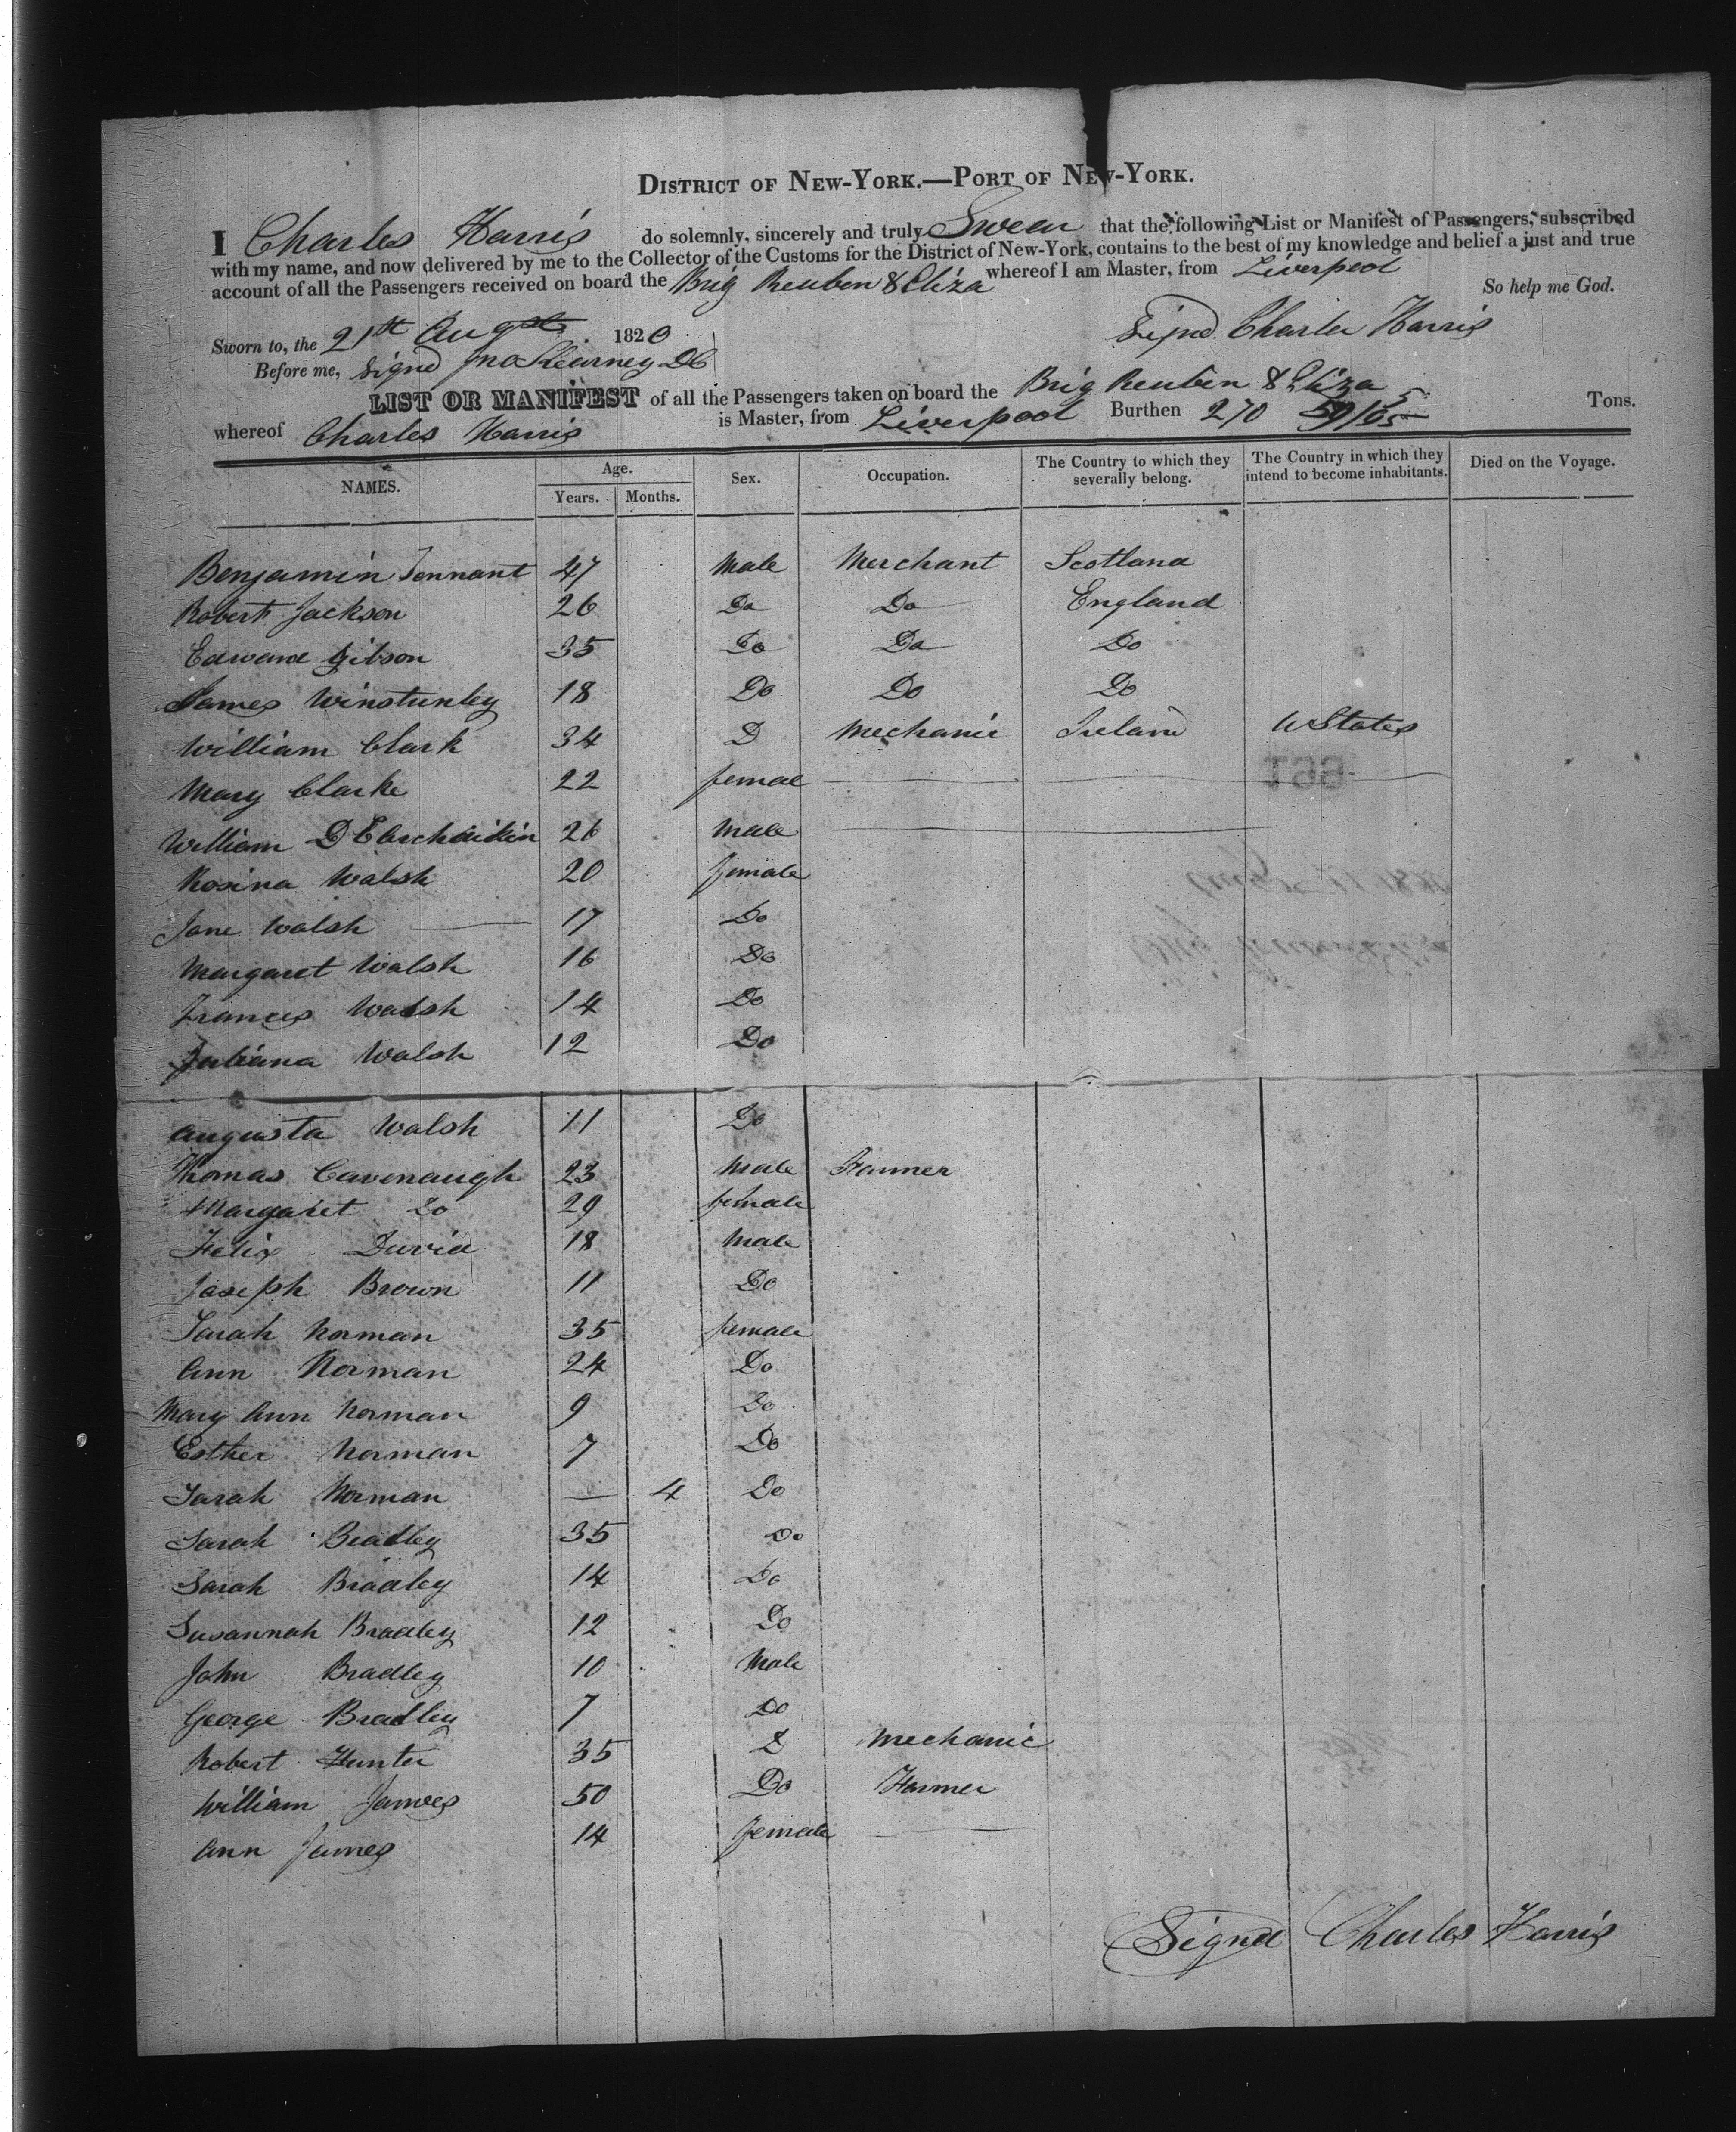 DISTRICT OF NEW-YORK.—PORT OF NEW-YORK.
I Charles Harris do solemnly, sincerely and truly Swear that the following List or Manifest of Passengers, subscribed
with my name, and now delivered by me to the Collector of the Customs for the District of New-York, contains to the best of my knowledge and belief a just and true
account of all the Passengers received on board the Brig Reuben & Eliza whereof I am Master, from Liverpool So help me God.
Sworn to, the 21th Augst 1820 Signd Charles Harris
Before me, Signd Jno Kearney DC
LIST OR MANIFEST of all the Passengers taken on board the Brig Reuben & Eliza
whereof Charles Harris is Master, from Liverpool Burthen 270 Tons.
NAMES. Age. Years. Months. Sex. Occupation. The Country to which they severally belong. The Country in which they intend to become inhabitants. Died on the Voyage.
Benjamin Tennant 47 Male Merchant Scotland
Robert Jackson 26 Do Do England
Edward Gibson 35 Do Do Do
James Winstunley 18 Do Do Do
William Clark 34 D Mechanic Ireland UStates
Mary Clarke 22 femal
William D 26 Male
Rosina Walsh 20 female
Jane Walsh 17 Do
Margaret Walsh 16 Do
Frances Walsh 14 Do
Juliana Walsh 12 Do
Augusta Walsh 11 Do
Thomas Cavenaugh 23 Male Farmer
Margaret Do 29 female
Felix David 18 Male
Joseph Brown 11 Do
Sarah Norman 35 female
Ann Norman 24 Do
Mary Ann Norman 9 Do
Esther Norman 7 Do
Sarah Norman — 4 Do
Sarah Bradley 35 Do
Sarah Bradley 14 Do
Susannah Bradley 12 Do
John Bradley 10 Male
George Bradley 7 Do
Robert Hunter 35 D Mechanic
William James 50 Do Farmer
Ann James 14 female
Signd Charles Harris